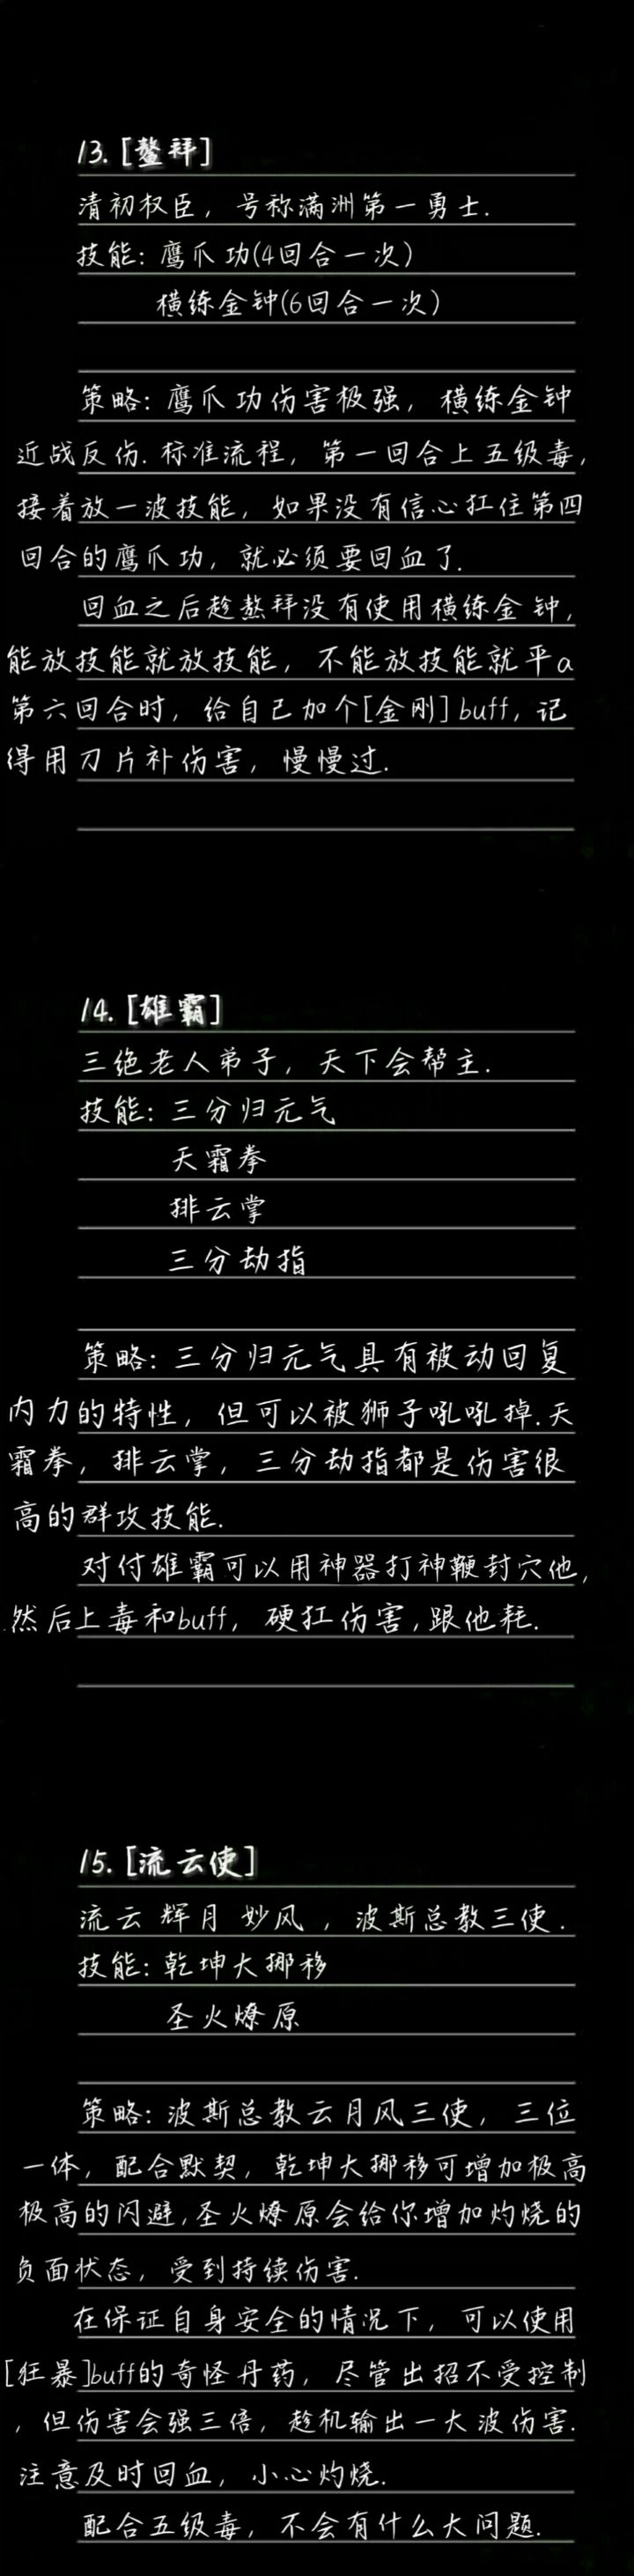 13.[鳌拜]
清初权臣，号称满洲第一勇士.
技能：鹰爪功(4回合一次)
横练金钟(6回合一次)
策略：鹰爪功伤害极强，横练金钟
近战反伤.标准流程，第一回合上五级毒，
接着放一波技能，如果没有信心扛住第四
回合的鹰爪功，就必须要回血了.
回血之后趁熬拜没有使用横练金钟，
能放技能就放技能，不能放技能就平a
第六回合时，给自己加个[金刚]buff，记
得用刀片补伤害，慢慢过.
14.[雄霸]
三绝老人弟子，天下会帮主.
技能：三分归元气
天霜拳
排云掌
三分劫指
策略：三分归元气具有被动回复
内力的特性，但可以被狮子吼吼掉.天
霜拳，排云掌，三分劫指都是伤害很
高的群攻技能.
对付雄霸可以用神器打神鞭封穴他，
然后上毒和buff，硬扛伤害，跟他耗.
15.[流云使]
流云 辉月 妙风，波斯总教三使.
技能：乾坤大挪移
圣火燎原
策略：波斯总教云月风三使，三位
一体，配合默契，乾坤大挪移可增加极高
极高的闪避，圣火燎原会给你增加灼烧的
负面状态，受到持续伤害.
在保证自身安全的情况下，可以使用
[狂暴]buff的奇怪丹药，尽管出招不受控制
，但伤害会强三倍，趁机输出一大波伤害.
注意及时回血，小心灼烧.
配合五级毒，不会有什么大问题.